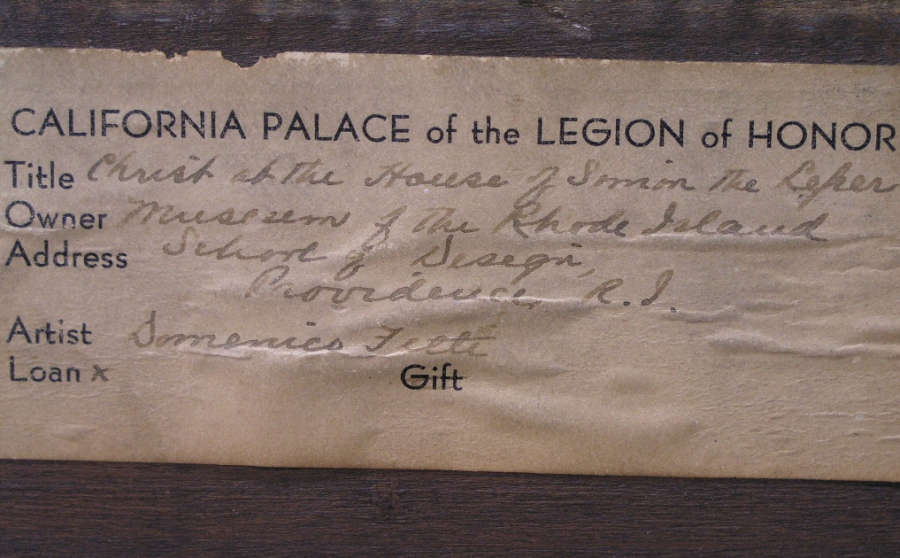 CALIFORNIA PALACE of the LEGION of HONOR
Title Christ at the House of Simon the Leper
Owner Museum of the Rhode Island
Address School of Design,
Providence, R.I.
Artist Domenico Fetti
Loan x Gift